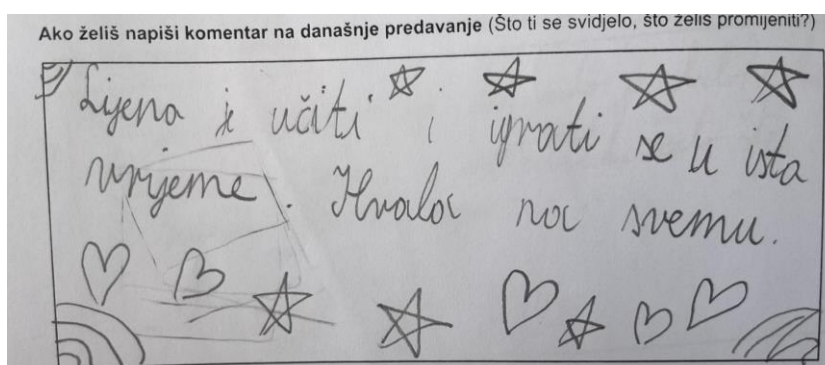 Ako želiš napiši komentar na današnje predavanje (Što ti se svidjelo, što želiš promijeniti?)
Lijepo je učiti i igrati se u isto
vrijeme. Hvala na svemu.